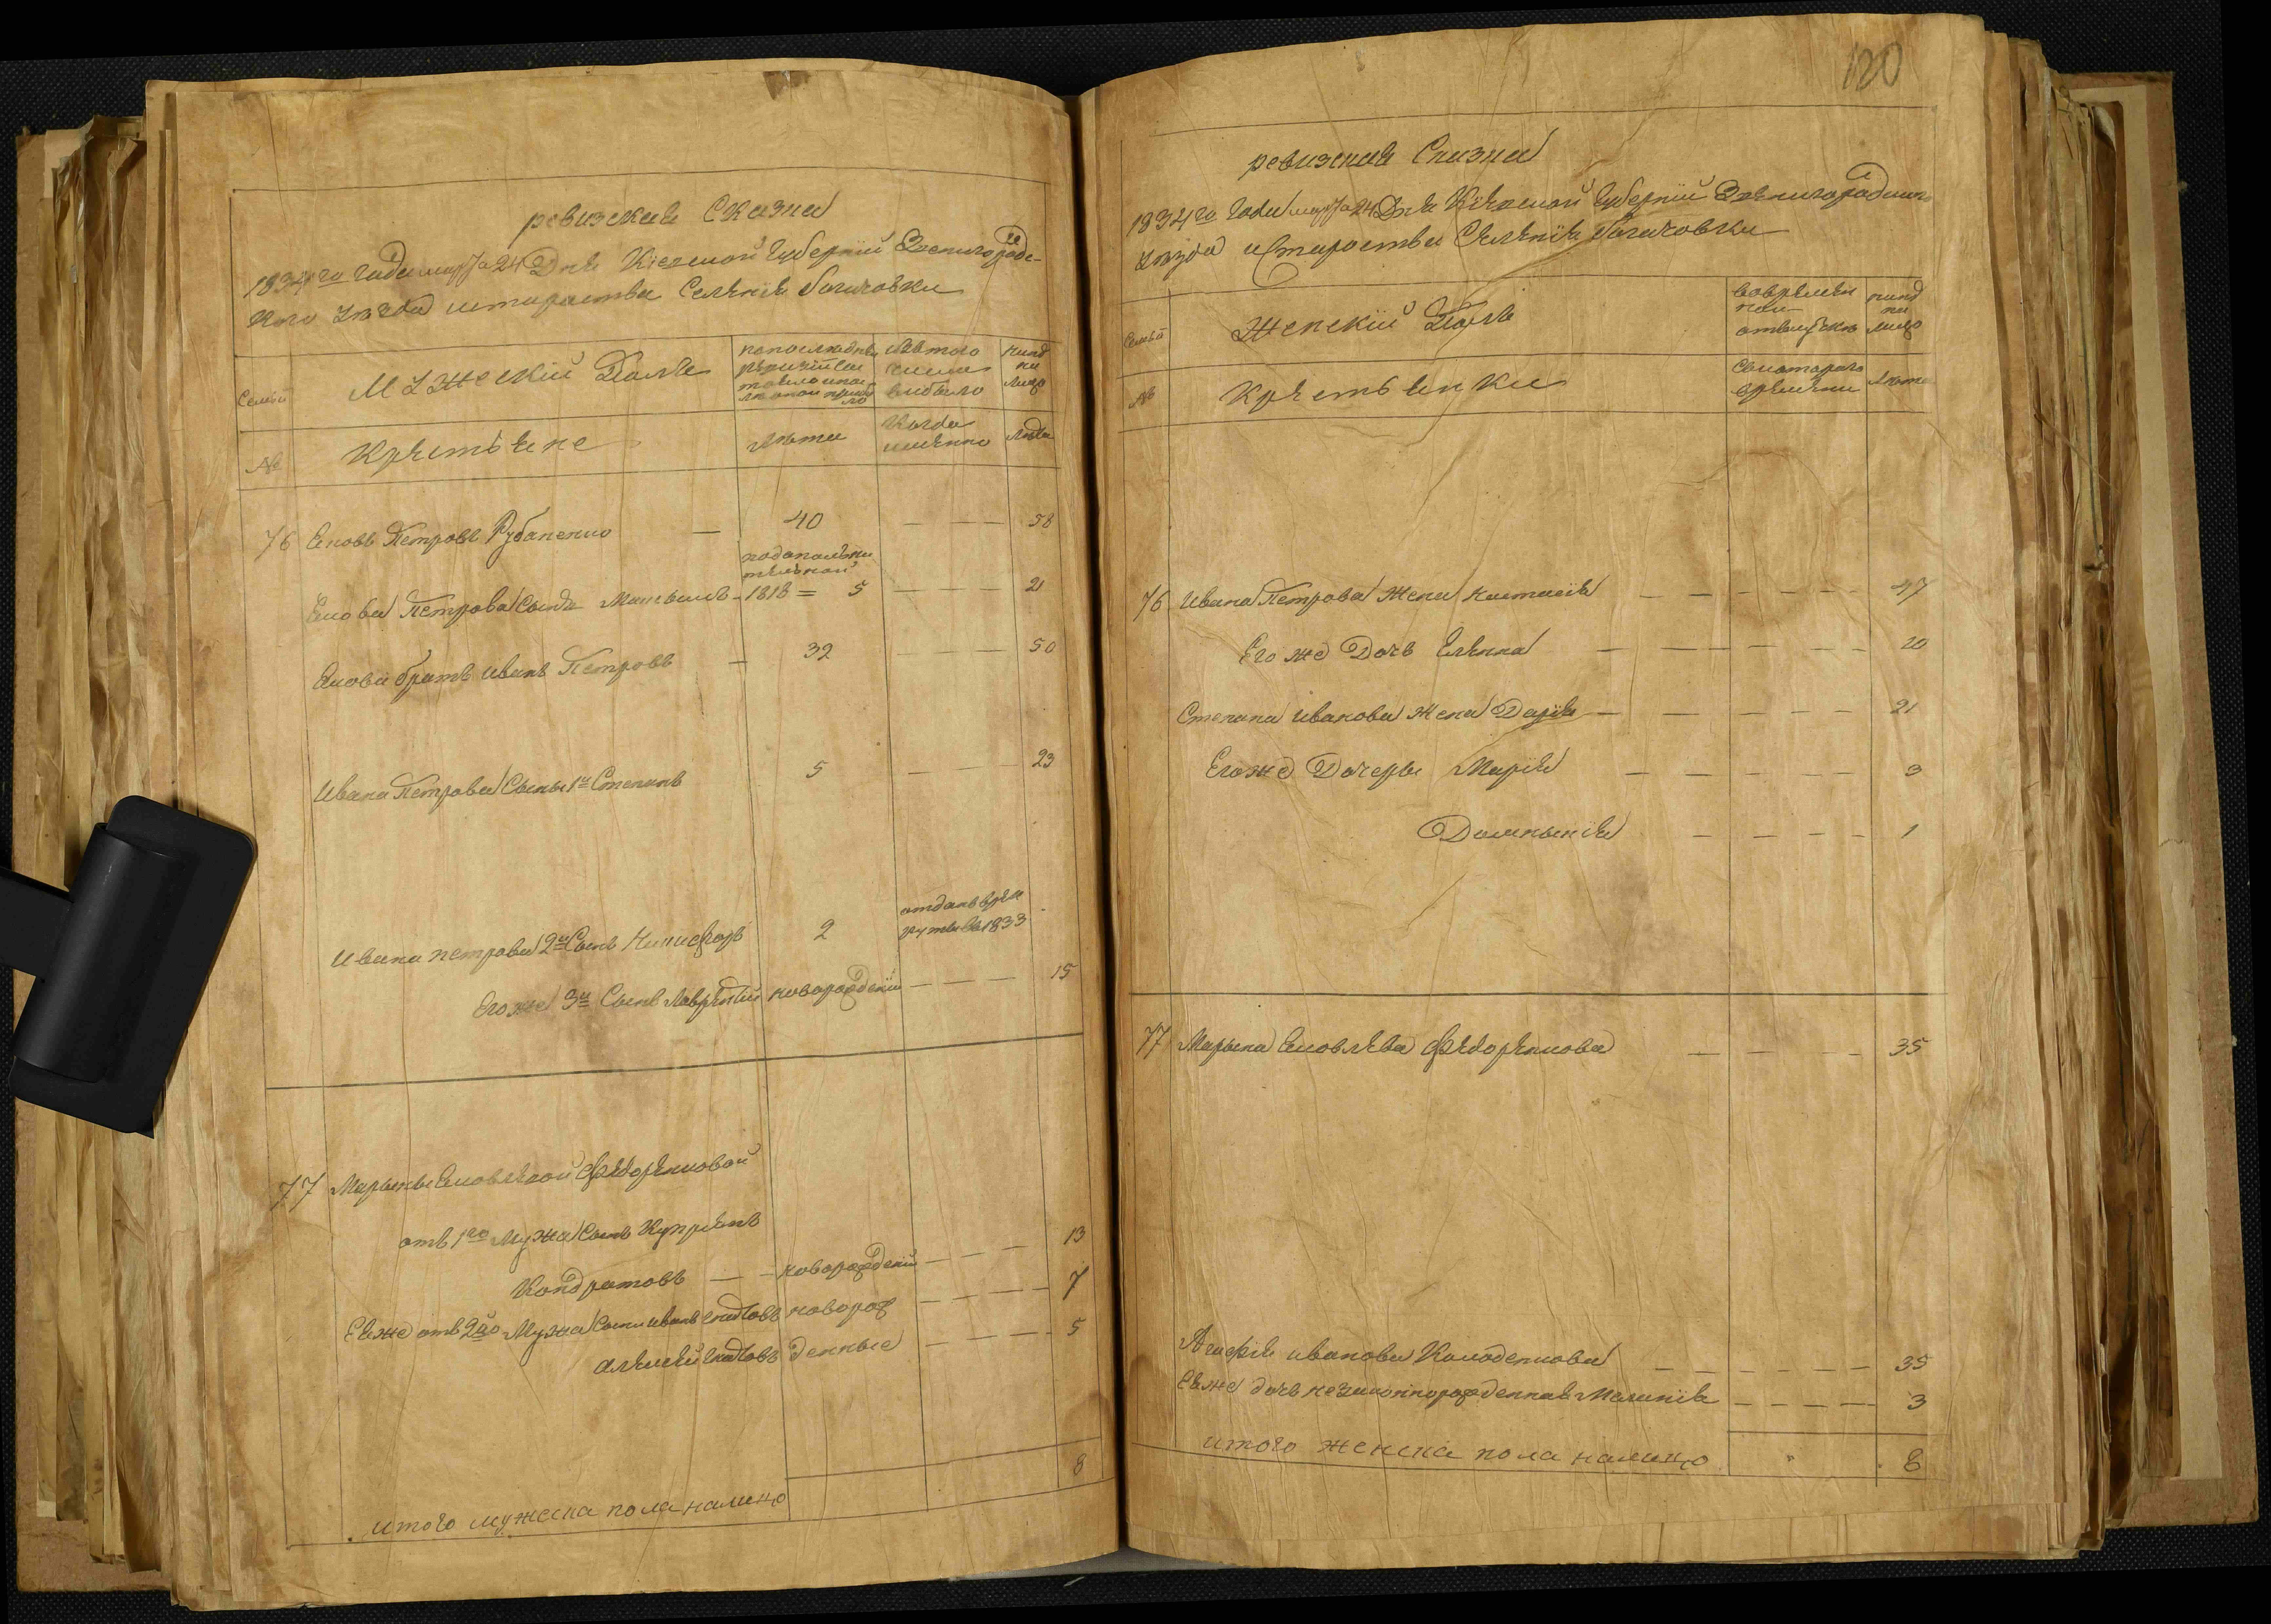 ревизская Сказка
1834го года марта 24 Дня Кіевской Губерніи Звенигородс-
кого уезда и староства Селенія Богачовки
Семьи
Мужескій Полъ
по последней ревизіи состояло и после оной прибыло
изъ того числа выбыло
ныне на лицо
№
Крестьяне
Лета
Когда именно
Лета
76 Яковъ Петровъ Рубаненко — 40 — — — 58
по дополнительной
Якова Петрова Сынъ Матвей - 1818 = 5 — — — 21
Якова братъ иванъ Петровъ — 32 — — — 50
Ивана Петрова Сыны 1й Степанъ 5 — — — 23
Ивана петрова 2й Сынъ Никифоръ 2 отданъ в рекруты въ 1833
Его же 3й Сынъ Лаврентій новорожденій — — — 15
77 Марыны Яковлевой Федоренковой
отъ 1го Мужа Сынъ Купріянъ
Кондратовъ — — новорожденій — — — 13
Ея же отъ 2го Мужа Сыны иванъ новорож — — — 7
алексей денные — — — 5
итого мужеска пола налицо 8
120
ревизская Сказка
1834го года марта 24 Дня Кіевской Губерніи Звенигородского
уезда и Староства Селенія Богачовки
Семьи
Женскій Полъ
во временной отлучке
ныне на лицо
№
Крестьянки
Съ котораго времени
Лета
76 Ивана Петрова Жена Настасія — — — — — 47
Его же Дочь Елена — — — — — 20
Степана иванова Жена Дарія — — — — — 21
Его же Дочеры Марія — — — — — 3
Домникія — — — — 1
77 Марына Яковлева Федоренкова — — — — 35
Агафія иванова Колоденкова — — — — — 35
Ея же дочь незаконнорожденная Меланія — — — — 3
итого женска пола налицо " 8